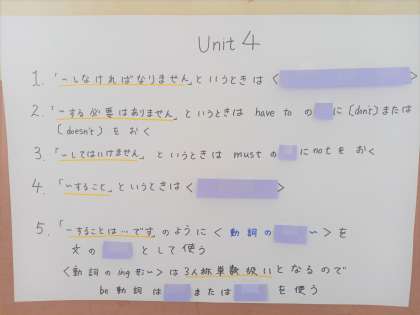 Unit 4
1. 「〜しなければなりません」というときは < >
2. 「〜する必要はありません」というときは have to の に (don't) または
(doesn't) をおく
3. 「〜してはいけません」というときは must の に not を おく
4. 「〜すること」というときは < >
5. 「〜することは…です」のように < 動詞の 〜 > を
文の として使う
<動詞の ing 形〜> は 3人称単数扱いとなるので
be動詞は または を使う